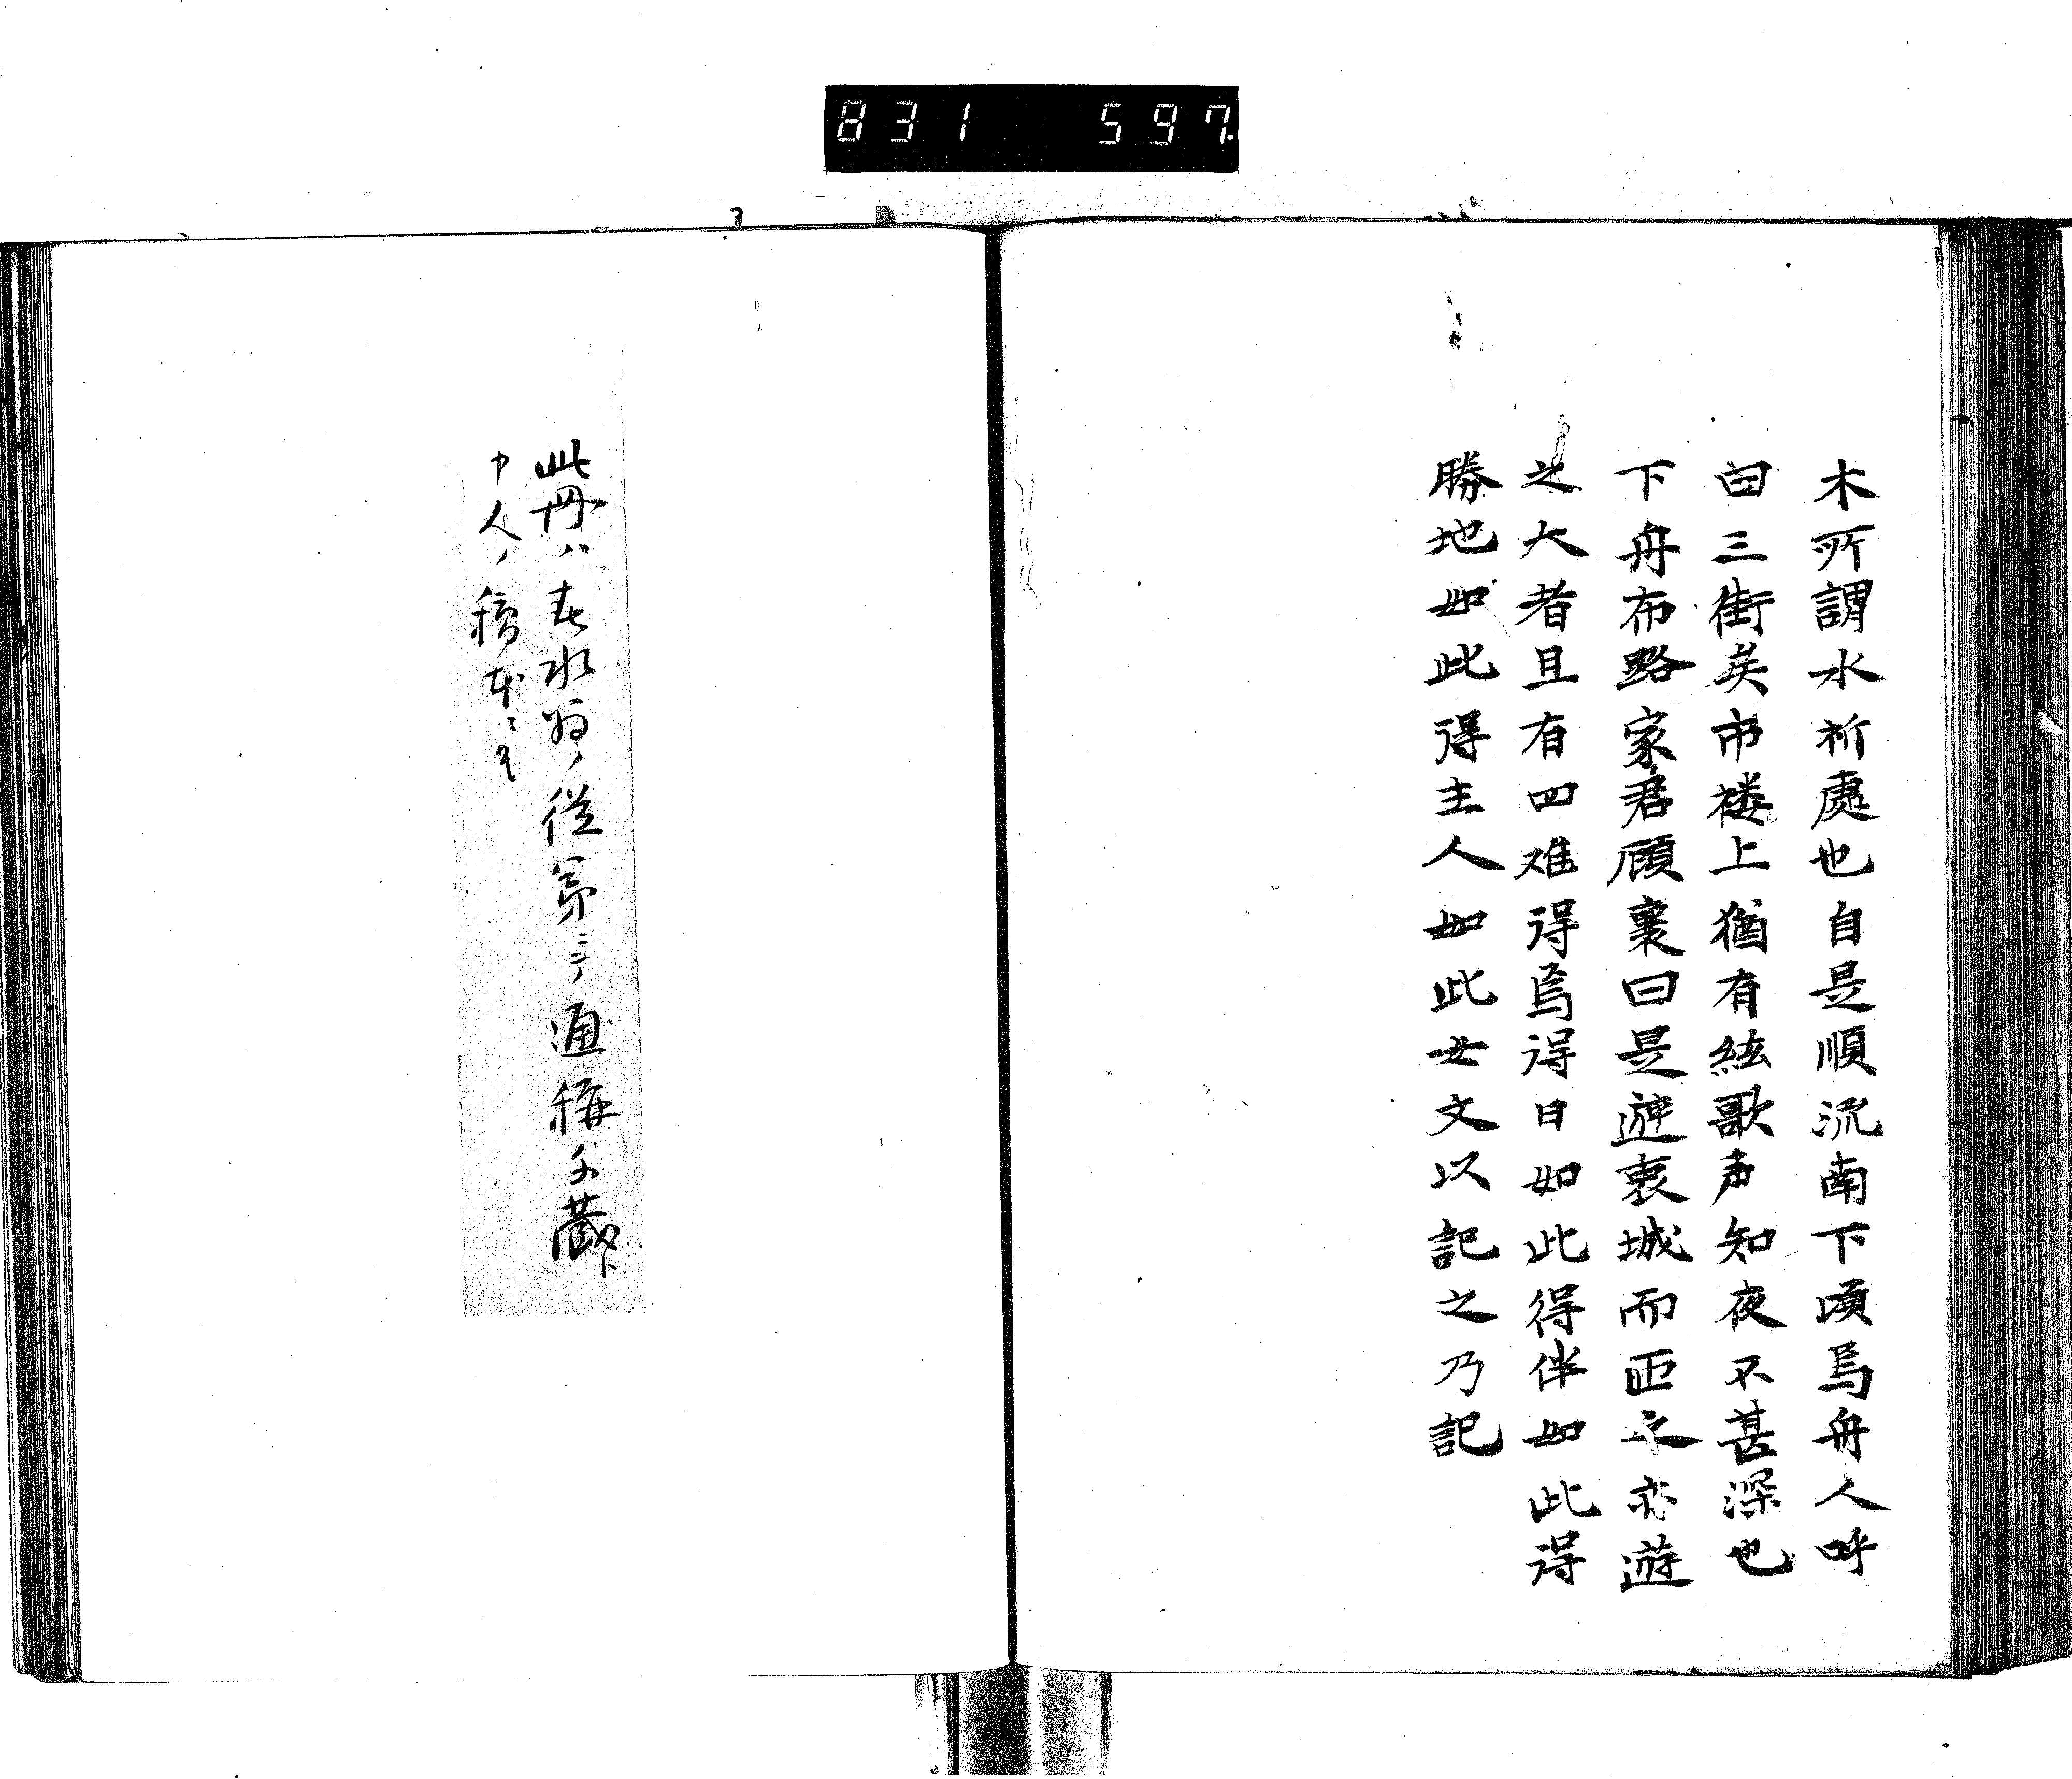 831 597.
木所謂水祈處也自是順流南下頃焉舟人呼
曰三街矣市楼上猶有絃歌声知夜不甚深也
下舟布路家君顧襄曰是遊衷城而匝之亦遊
之大者且有四难得焉得日如此得伴如此得
勝地如此得主人如此女文以記之乃記
此冊ハ春水翁ノ従弟ニテ通稱千蔵ト
申人ノ稿本ニ